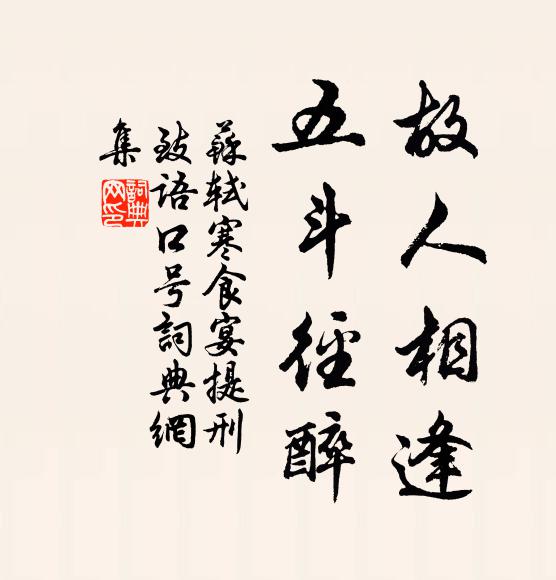 故人相逢
五斗徑醉
蘇軾寒食宴提刑
致語口号詞典網
集
詞典
网印